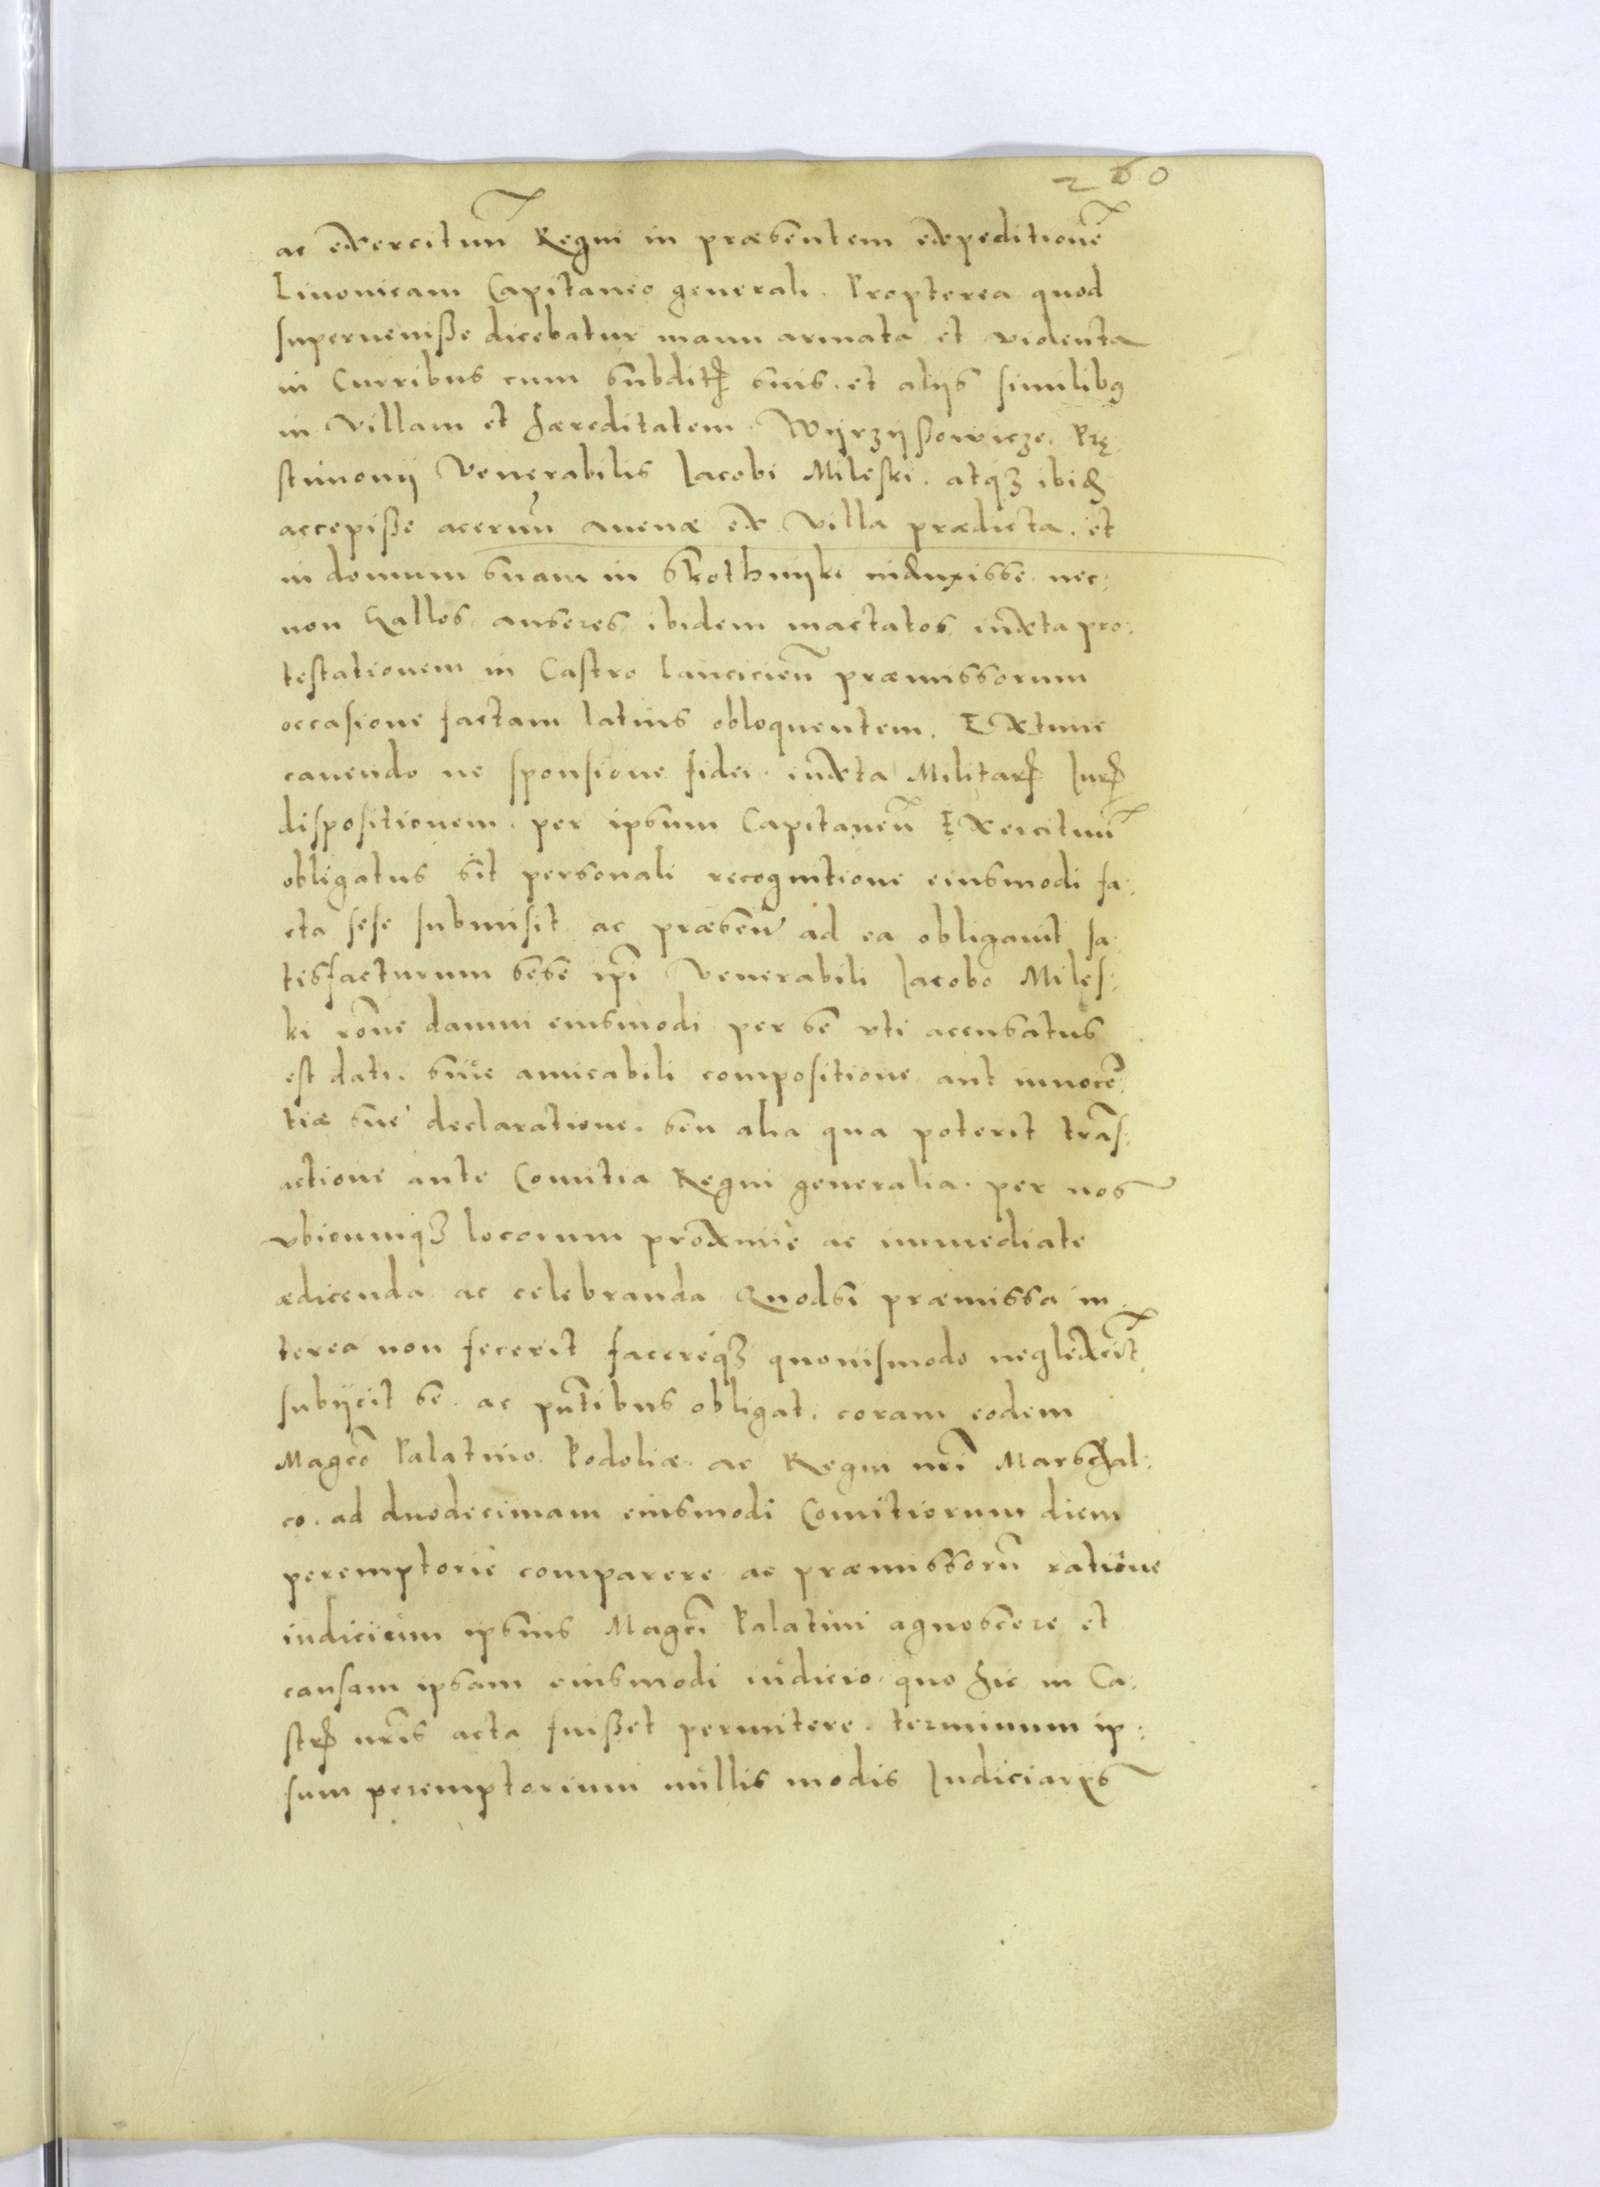 260
ac exercituu̅ Regni in præsentem expeditione̅
Liuonicam Capitaneo generali. Propterea quod
superuenisse dicebatur manu armata et violenta
in Curribus cum subditis suis. et alijs similibus
in Villam et hæreditatem. Wyrzyssowicze. Prę
stimonij Venerabilis Iacobi Mileski. atq3 ibide̅
accepisse aceruu̅ auenæ ex Villa prædicta. et
in domum suam in Skothnyki induxisse. nec:
non Gallos anseres ibidem mactatos iuxta pro:
testationem in Castro Lancicien̅ præmissorum
occasione factam latius obloquentem. Extunc
cauendo ne sponsione fidei. iuxta Militaris Iuris
dispositionem. per ipsum Capitaneu̅ Exercituu̅
obligatus sit personali recognitione eiusmodi fa:
cta sese submisit ac præsen̅ ad ea obligauit sa
tisfacturum sese ip̅i Venerabili Iacobo Miles:
ki ro̅ne damni eiusmodi per se vti accusatus
est dati. siue amicabili compositione aut innoce̅:
tiæ sue declaratione. seu alia qua poterit tra̅s:
actione ante Comitia Regni generalia. per nos
vbicumq3 locorum proxime ac immediate
ædicenda ac celebranda Quodsi præmissa in
terea non fecerit facereq3 quouismodo neglexerit
subijcit se. ac pn̅tibus obligat. coram eodem
Magco̅ Palatino. Podoliæ. ac Regni nr̅i Marschal:
co. ad duodecimam eiusmodi Comitiorum diem
peremptorie comparere ac præmissoru̅ ratione
iudicium ipsius Magci̅ Palatini agnoscere et
causam ipsam eiusmodi iudicio quo hic in Ca:
stris nr̅is acta fuisset permitere. terminum ip:
sum peremptorium nullis modis Iudiciarijs